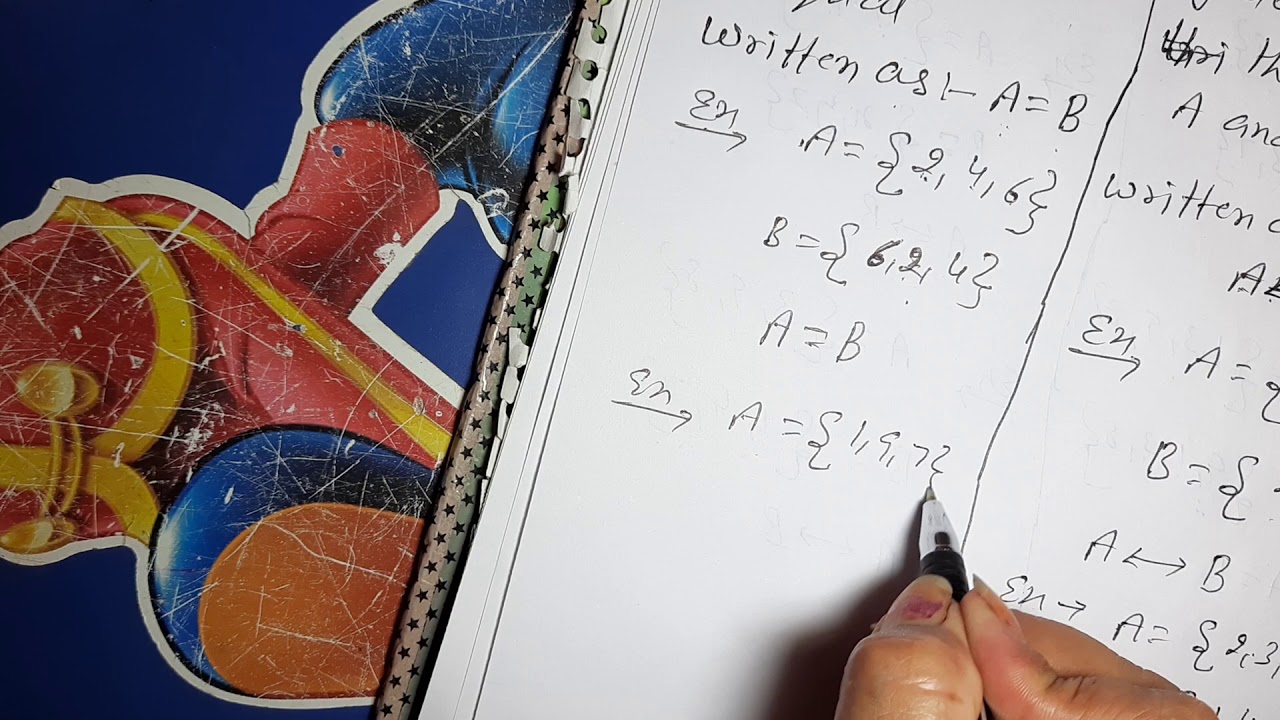 Written as :- A = B
Ex → A = {2, 4, 6}
B = {6, 2, 4}
A = B
Ex → A = {1, 9, 7}
A and
Written
Ex → A = {
B = {
A ↔ B
Ex → A = {2, 3,